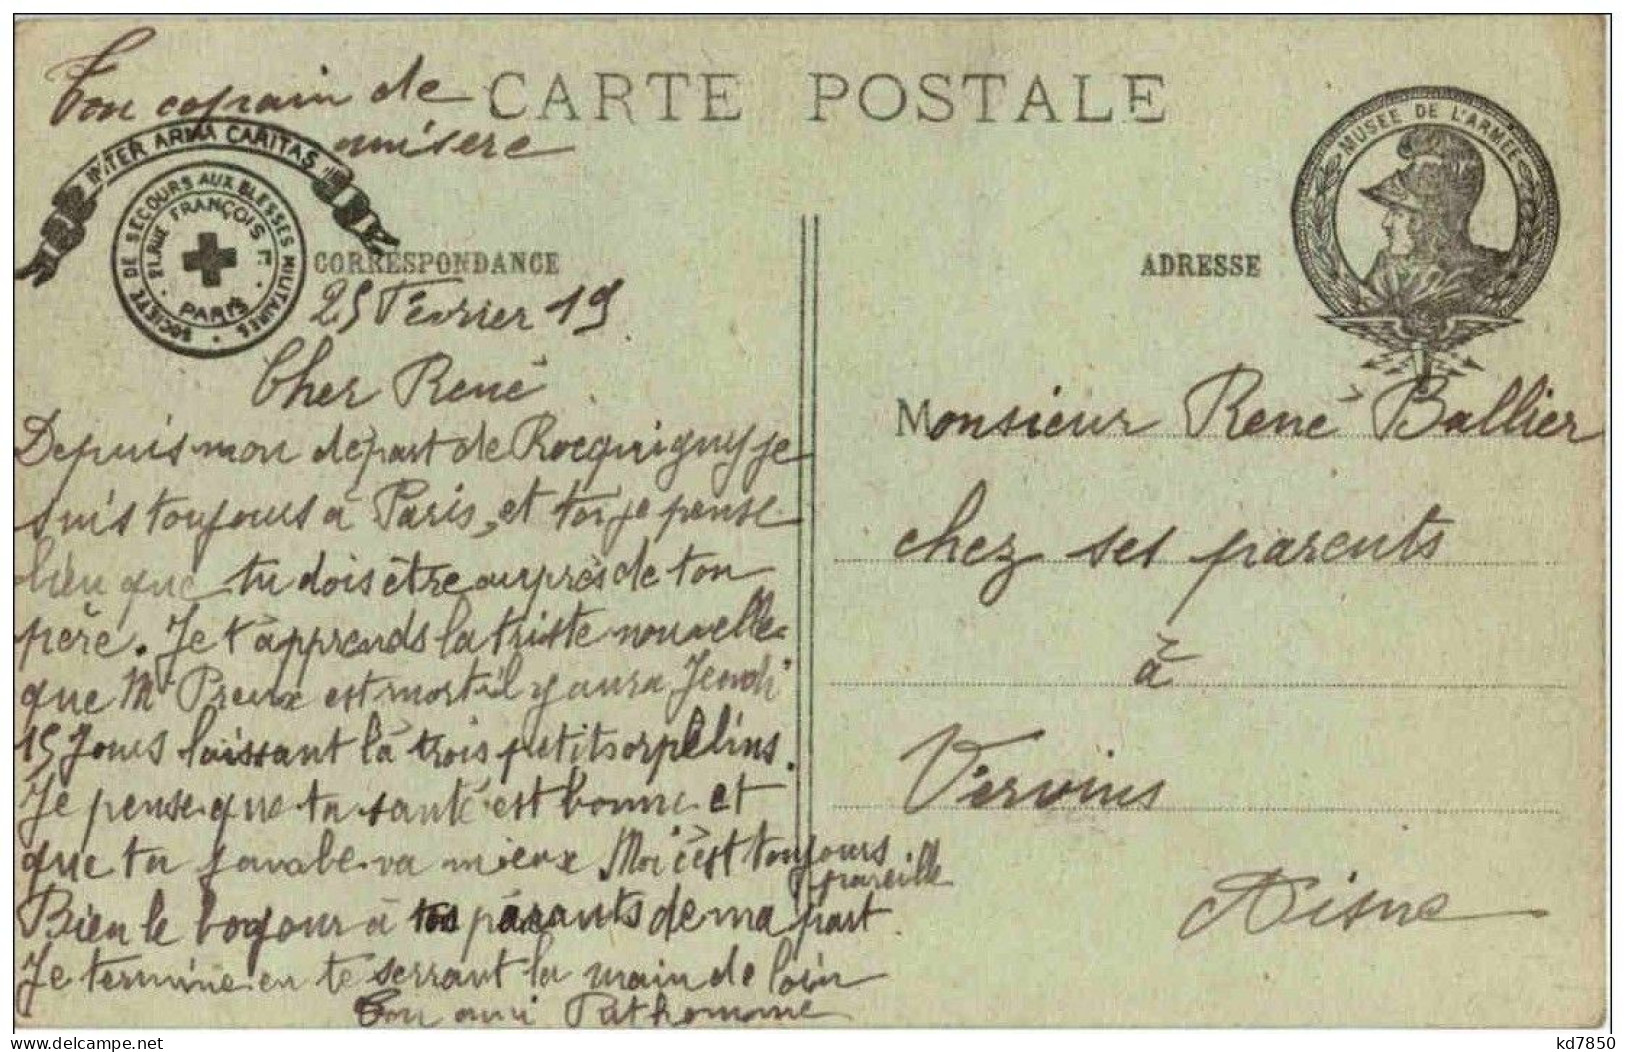 Ton copain de
misère
CARTE POSTALE
INTER ARMA CARITAS
SOCIETE DE SECOURS AUX BLESSES MILITAIRES
21, RUE FRANÇOIS Ier
PARIS
MUSEE DE L'ARMEE
CORRESPONDANCE
ADRESSE
25 Février 19
Cher René
Depuis mon départ de Rocquigny je
suis toujours à Paris, et toi je pense
bien que tu dois être auprès de ton
père. Je t'apprends la triste nouvelle
que Mr Preux est mort il y aura Jeudi
15 Jours laissant là trois petits orphelins.
Je pense que ta santé est bonne et
que ta va mieux Moi c'est toujours
pareille
Bien le bogour à tes parants de ma part
Je termine en te serrant la main de loin
Ton ami Pathomme
Monsieur René Ballier
chez ses parents
à
Vervins
Aisne
delcampe.net
kd7850